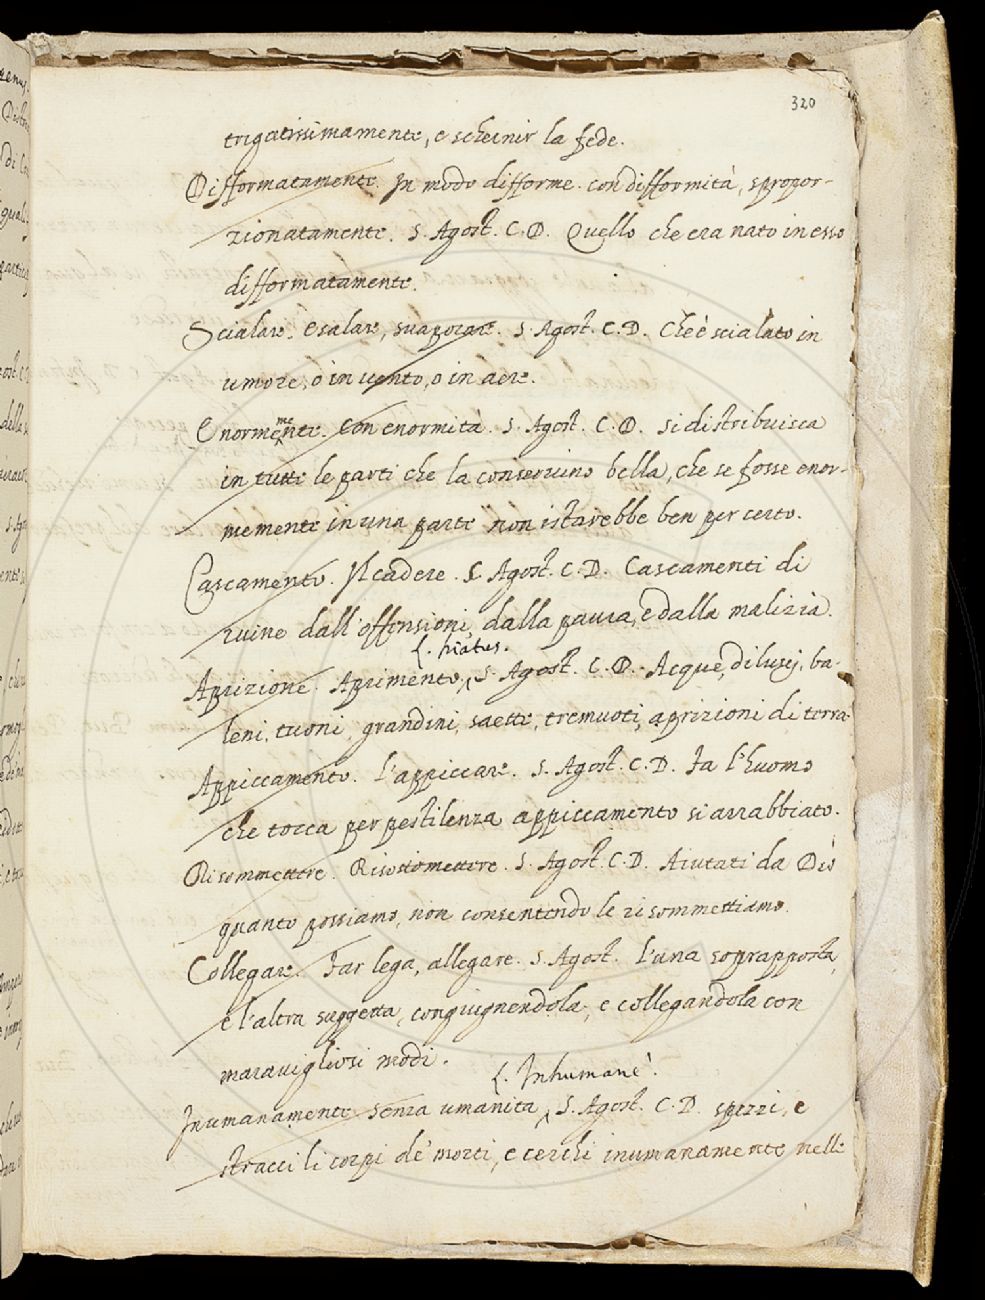 320
trigatissimamente, e schernir la fede.
Difformatamente. In modo difforme. con difformità, spropor-
zionatamente. S. Agost. C. D. Quello che era nato in esso
difformatamente.
Scialare. Esalare, svaporare. S. Agost. C. D. Che è scialato in
umore, o in vento, o in aere.
Enormemente. Con enormità. S. Agost. C. D. si distribuisca
in tutte le parti che la conservino bella, che se fosse enor-
memente in una parte non istarebbe ben per certo.
Cascamento. Il cadere. S. Agost. C. D. Cascamenti di
ruine dall'offensioni, dalla paura, e dalla malizia.
L. hiatus.
Aprizione. Aprimento, S. Agost. C. D. Acque, diluvj, ba-
leni, tuoni, grandini, saette, tremuoti, aprizioni di terra.
Appiccamento. L'appiccare. S. Agost. C. D. Fa l'huomo
che tocca per pestilenza appiccamento si arrabbiato.
Risommettere. Risottomettere. S. Agost. C. D. Aiutati da Dio
quanto possiamo, non consentendo le risommettiamo.
Collegare. Far lega, allegare. S. Agost. L'una soprapposta,
e l'altra suggetta, congiugnendola, e collegandola con
maravigliosi modi.
L. Inhumanè.
Inumanamente senza umanità, S. Agost. C. D. spezzi, e
stracci li corpi de' morti, e cerchi inumanamente nelle